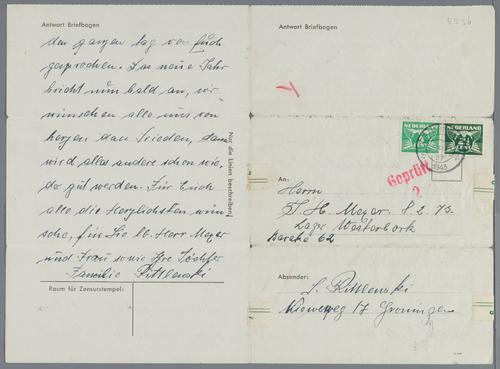 Antwort Briefbogen
den ganzen tag von Euch
gesprochen. Das neue Jahr
bricht nun bald an, wir
wünschen alle uns von
herzen den Frieden, dann
wird alles andere schon wie-
do gut werden. Für Euch
alle die Herzlichsten wün-
sche, für Sie lb. Herr Meyer
und Frau sowie Ihre Töchter
Familie Rittlewski
Nur die Linien beschreiben!
Raum für Zensurstempel:
Antwort Briefbogen
NEDERLAND
NEDERLAND
1943
Geprüft
2
An:
Herrn
J. H. Meyer. 8. 2. 73.
Lager Westerbork
Baracke 62
Absender:
S. Rittlewski
Nieuweweg 17 Groningen